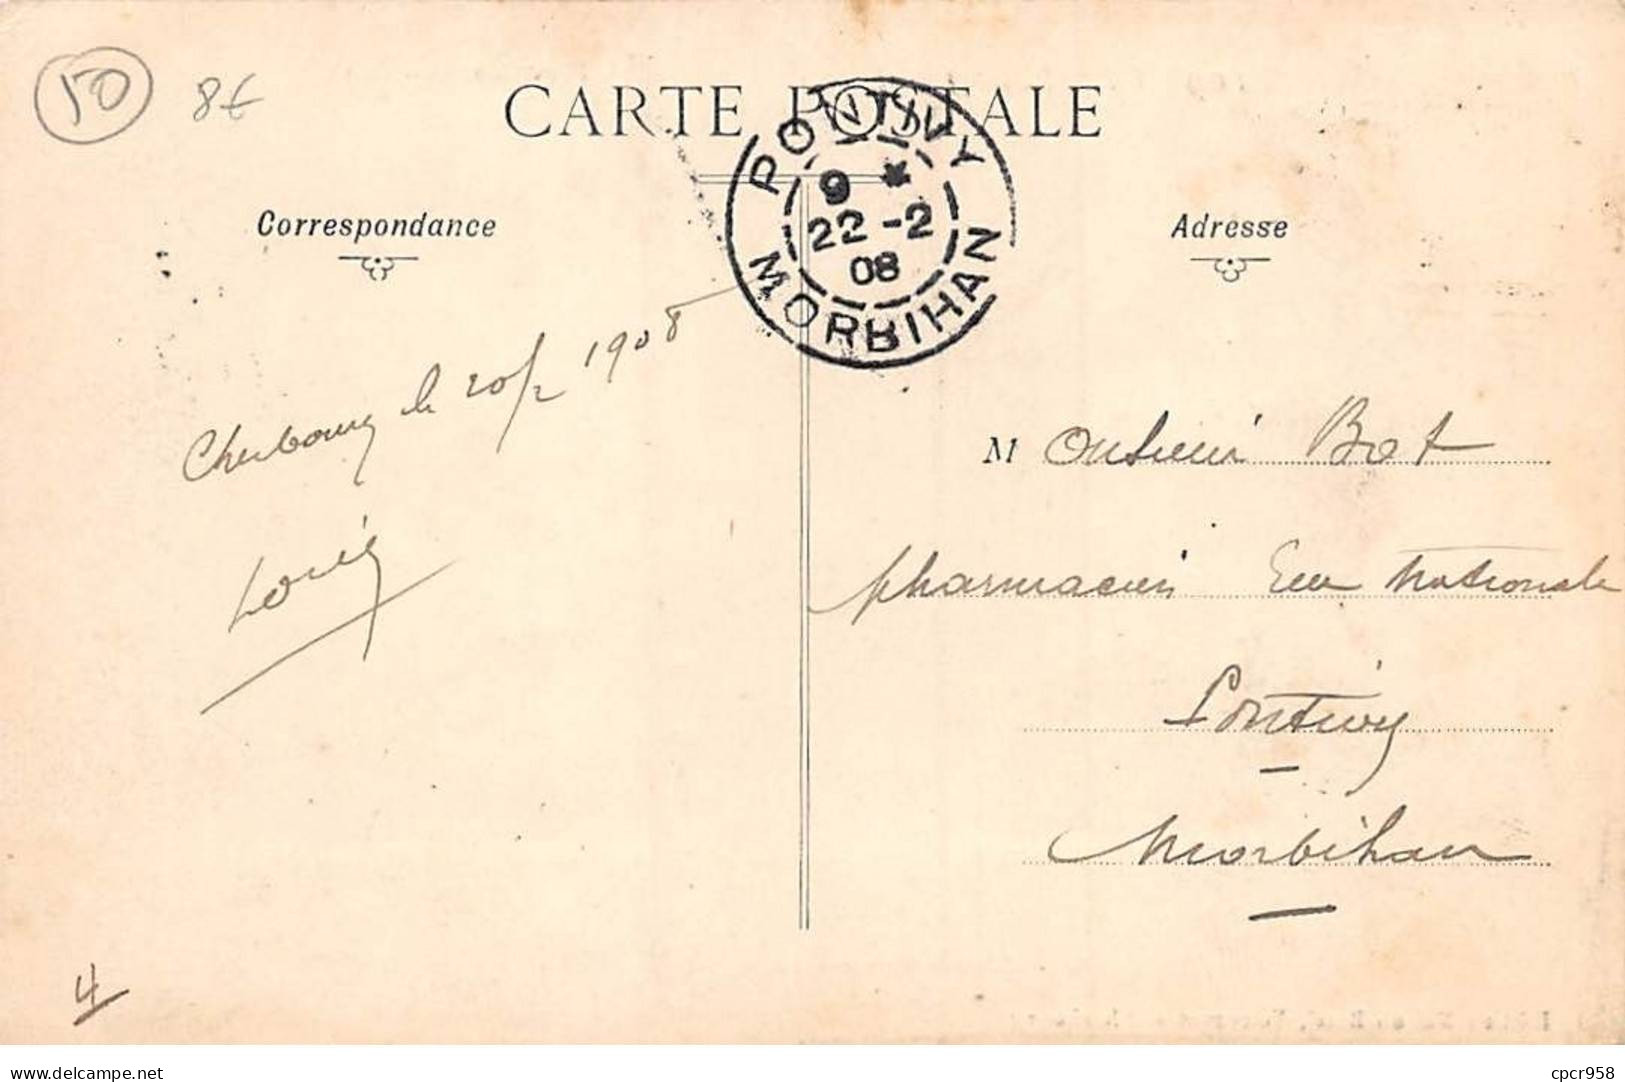 50
8€
CARTE POSTALE
PONTIVY
9 *
22 -2
08
MORBIHAN
Correspondance
Adresse
Cherbourg le 20/2 1908
M onsieur Bot
pharmacien Rue Nationale
Pontivy
Morbihan
4
www.delcampe.net
cpcr958